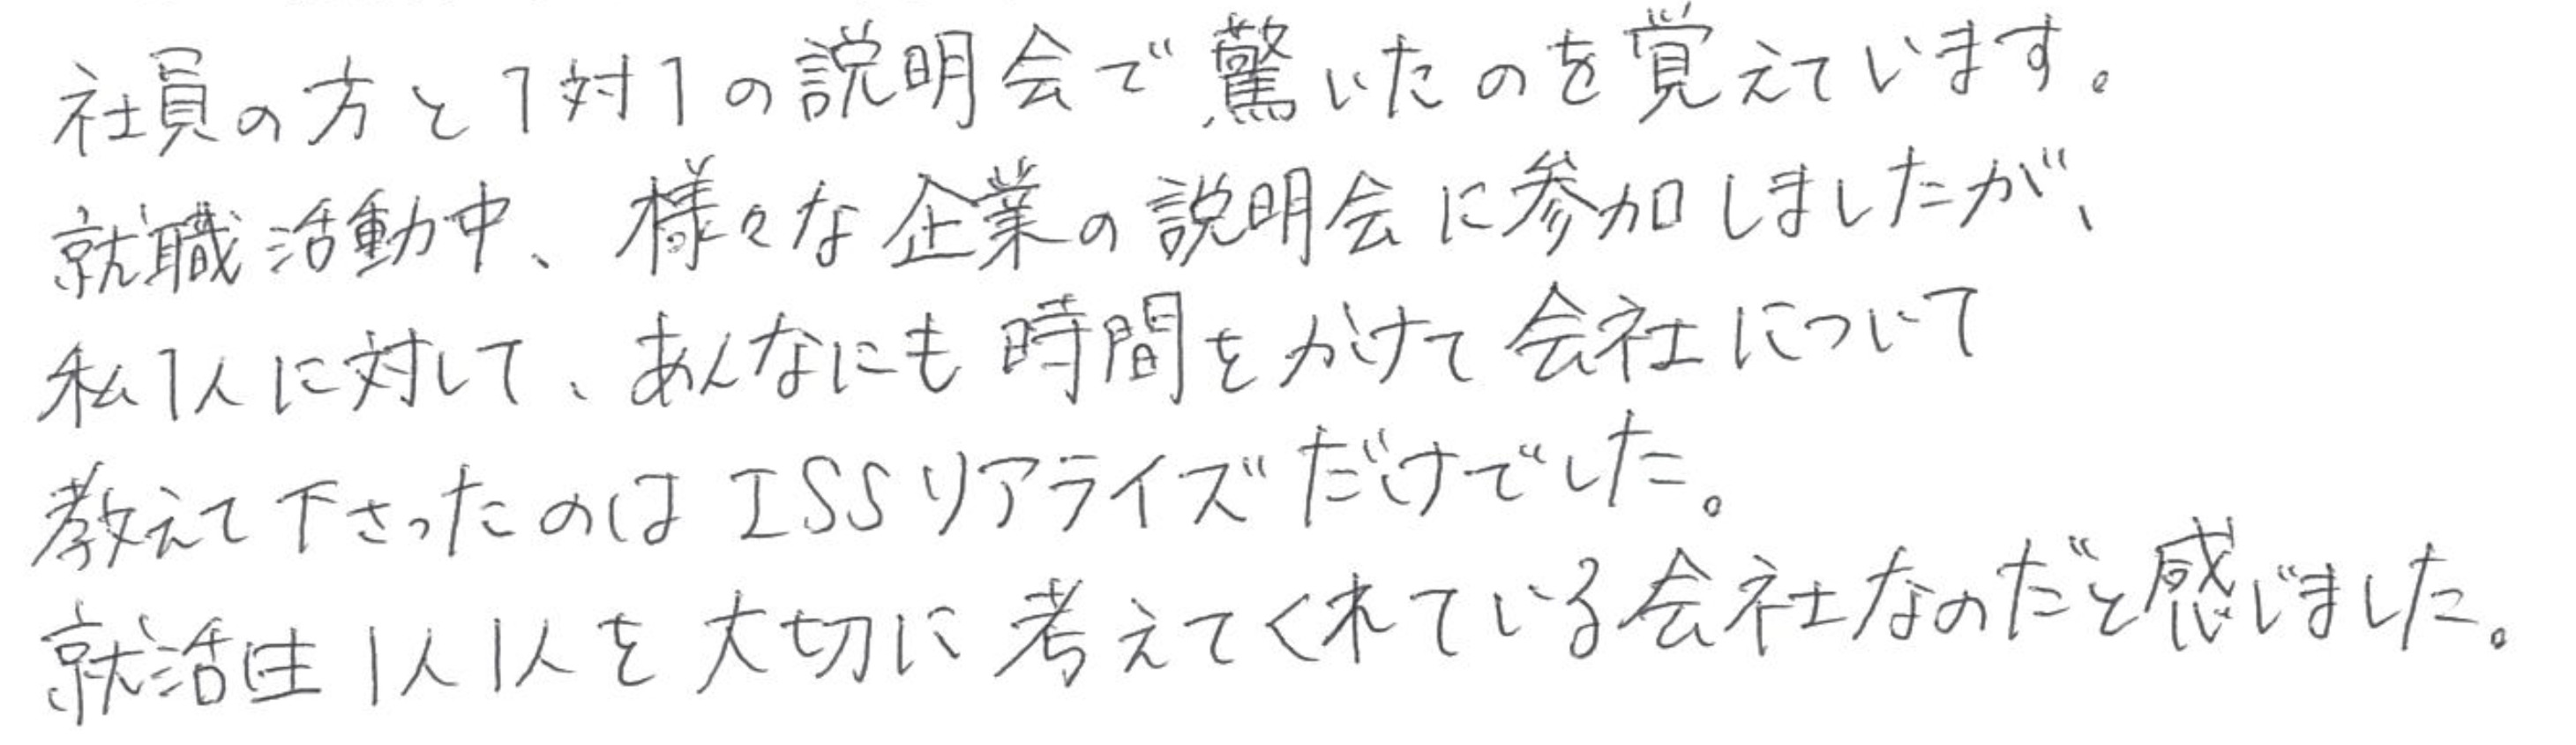 社員の方と1対1の説明会で驚いたのを覚えています。
就職活動中、様々な企業の説明会に参加しましたが、
私1人に対して、あんなにも時間をかけて会社について
教えて下さったのはISSリアライズだけでした。
就活生1人1人を大切に考えてくれている会社なのだと感じました。